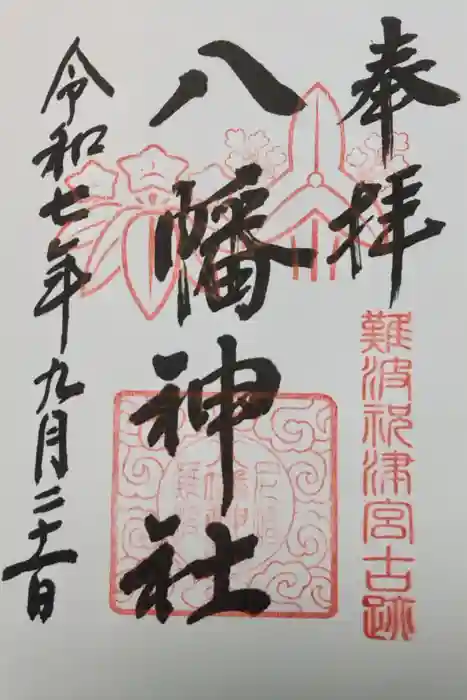 奉拝
難波祝津宮古跡
八幡神社
令和七年九月二十一日